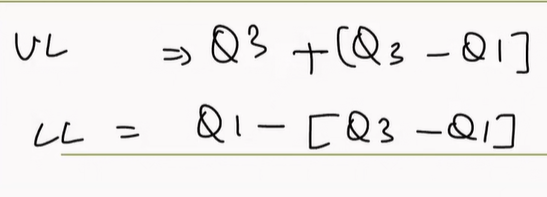 UL ⇒ Q3 + [Q3 - Q1]
LL = Q1 - [Q3 - Q1]